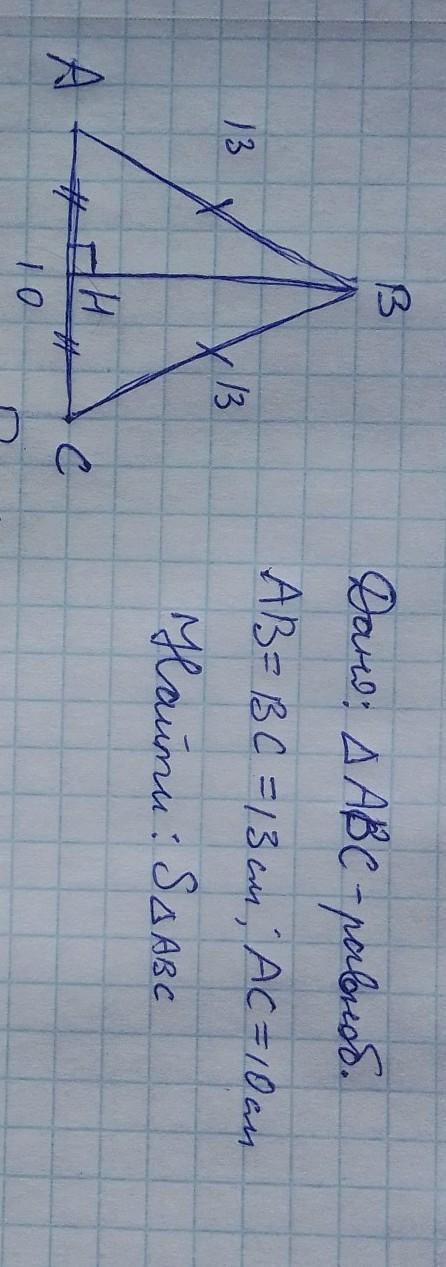 B
13
13
A
H
C
10
Дано: △ABC - равноб.
AB = BC = 13 см; AC = 10 см
Найти: S△ABC